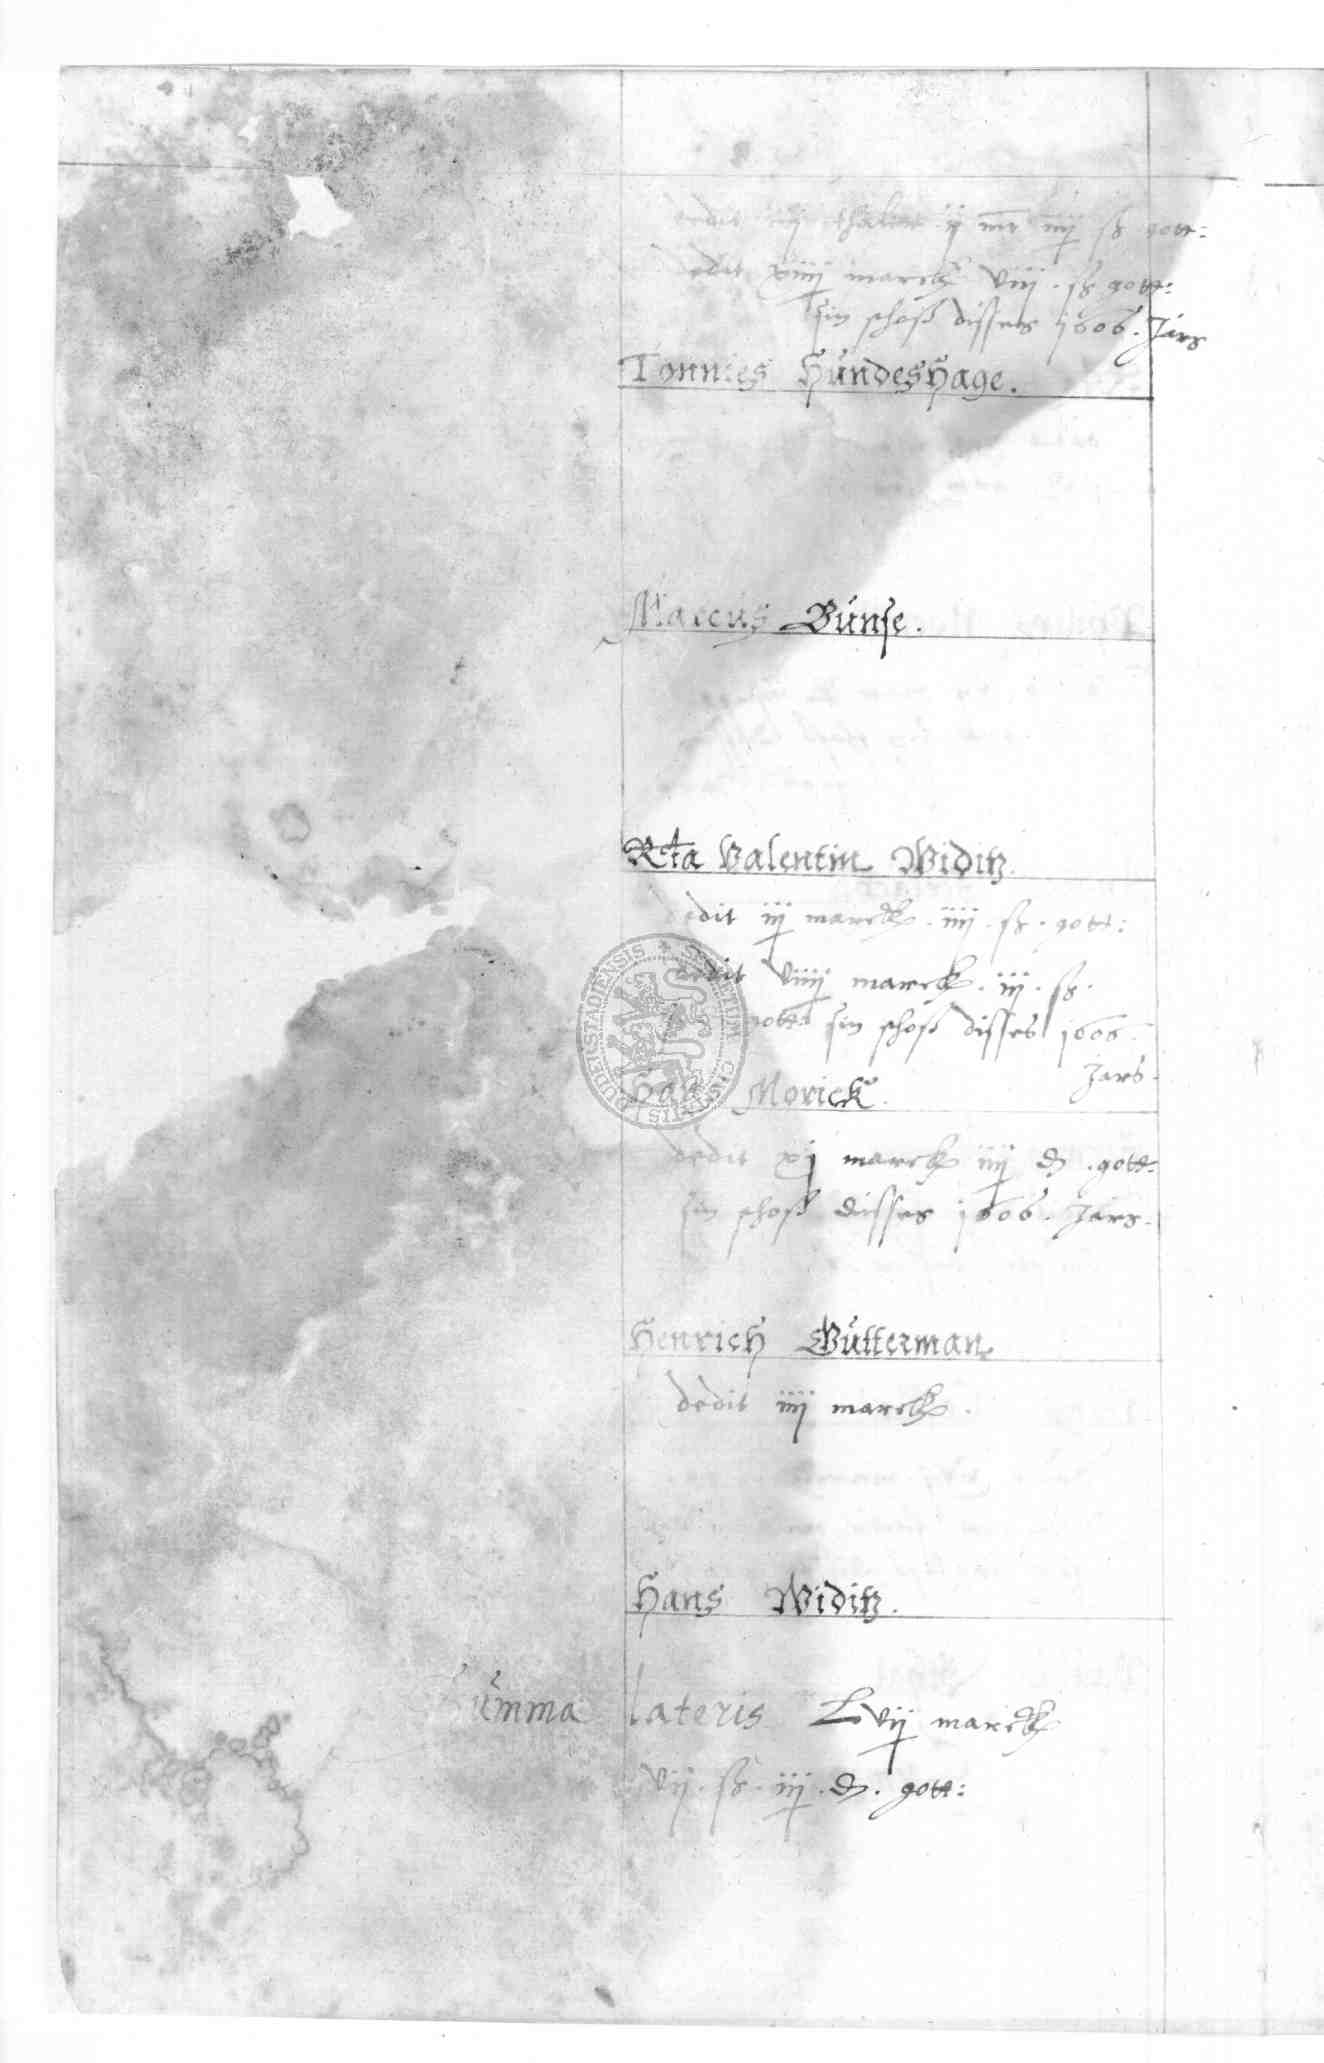 dedit iij thaler ij mr iiij ß gott:
dedit xiiij marck viij . ß gott:
sin schoß disses 1606. Jars
Tonnies Hůndeshage.
Marcus Bůnse.
Rta Valentin Widitz.
dedit iij marck . iiij . ß . gott:
dedit viiij marck . iij . ß .
gott: sin schoß disses 1606.
Jars.
Hans Morick.
dedit xj marck iiij d . gott:
sin schoß disses 1606. Jars.
Henrich Gůtterman
dedit iiij marck .
Hans Widitz.
Sůmma lateris Lvij marck
vij . ß . iiij . d . gott:
SIGILLUM CIVITATIS DUDERSTADIENSIS